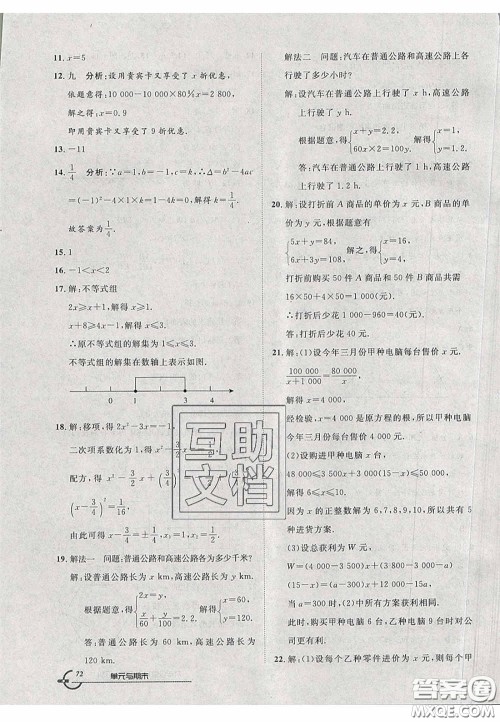 11. x=5
12. 九 分析:设用贵宾卡又享受了 x 折优惠,
依题意得:10 000-10 000×80%x=2 800,
解之得:x=0.9
即用贵宾卡又享受了 9 折优惠.
13. -11
14. 1/4 分析:∵a=1,b=-1,c=k,∴Δ=b²-4ac
=(-1)²-4×1×k=1-4k=0,解得 k=1/4.
故答案为 1/4.
15. 1
16. -1<x<2
17. 解:不等式组
2x≥x+1,解得 x≥1.
x+8≥4x-1,解得 x≤3
∴原不等式组的解集为 1≤x≤3.
不等式组的解集在数轴上表示如图.
-1 0 1 2 3 4
18. 解:移项,得 2x²-3x=-1,
二次项系数化为 1,得 x²-3/2x=-1/2,
配方,得 x²-3/2x+(3/4)²=-1/2+(3/4)²
(x-3/4)²=1/16
由此可得 x-3/4=±1/4,x₁=1,x₂=1/2.
19. 解法一 问题:普通公路和高速公路各为多少千米?
解:设普通公路长为 x km,高速公路长为 y km.
根据题意,得 {2x=y, x/60+y/100=2.2. 解得 {x=60, y=120.
答:普通公路长为 60 km,高速公路长为
120 km.
72 单元与期末
解法二 问题:汽车在普通公路和高速公路上各
行驶了多少小时?
解:设汽车在普通公路上行驶了 x h,高速公路
上行驶了 y h.
根据题意,得 {x+y=2.2, 60x×2=100y. 解得 {x=1, y=1.2.
答:汽车在普通公路上行驶了 1 h,高速公路
上行驶了 1.2 h.
20. 解:设打折前 A 商品的单价为 x 元,B 商品的单
价为 y 元,根据题意有
{5x+y=84, 6x+3y=108. 解得 {x=16, y=4.
打折前购买 50 件 A 商品和 50 件 B 商品共需
16×50+4×50=1 000(元)
∴打折后少花 1 000-960=40(元)
答:打折后少花 40 元.
21. 解:(1)设今年三月份甲种电脑每台售价 x 元.
100 000/(x+1 000)=80 000/x
解得:x=4 000,
经检验,x=4 000 是原方程的根,所以甲种电脑
今年三月份每台售价 4 000 元.
(2)设购进甲种电脑 x 台,
48 000≤3 500x+3 000(15-x)≤50 000
解得 6≤x≤10
因为 x 的正整数解为 6,7,8,9,10,所以共有 5
种进货方案.
(3)设总获利为 W 元,
W=(4 000-3 500)x+(3 800-3 000-a)
(15-x)=(a-300)x+12 000-15a
当 a=300 时,(2)中所有方案获利相同.
此时,购买甲种电脑 6 台,乙种电脑 9 台时对
公司更有利.
22. 解:(1)设每个乙种零件进价为 x 元,则每个甲
互助
文档
答案圈
MXQE.COM